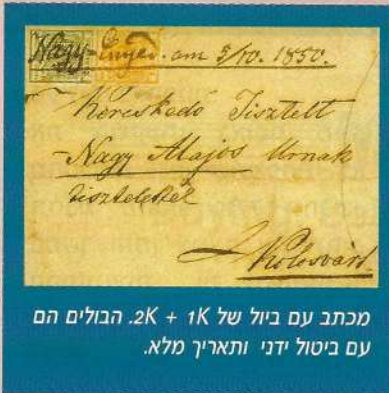 Nagy-Enyed. am 5/10. 1850.
Kereskedő Tisztelt
Nagy Alajos Urnak
tisztelettel
Kolosvárt
מכתב עם ביול של 1K + 2K. הבולים הם
עם ביטול ידני ותאריך מלא.